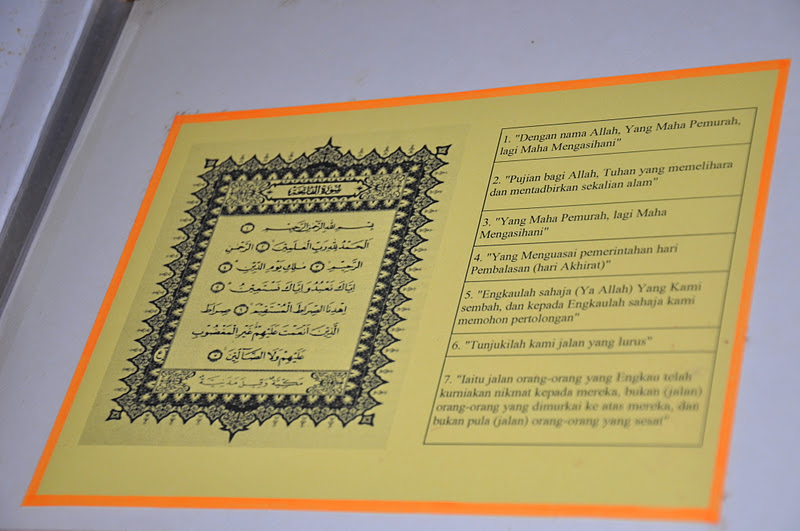 سُورَةُ الفَاتِحَة
بِسْمِ اللَّهِ الرَّحْمَٰنِ الرَّحِيمِ ١
الْحَمْدُ لِلَّهِ رَبِّ الْعَالَمِينَ ٢ الرَّحْمَٰنِ
الرَّحِيمِ ٣ مَالِكِ يَوْمِ الدِّينِ ٤
إِيَّاكَ نَعْبُدُ وَإِيَّاكَ نَسْتَعِينُ ٥
اهْدِنَا الصِّرَاطَ الْمُسْتَقِيمَ ٦ صِرَاطَ
الَّذِينَ أَنْعَمْتَ عَلَيْهِمْ غَيْرِ الْمَغْضُوبِ
عَلَيْهِمْ وَلَا الضَّالِّينَ ٧
مكية وهي سبع آيات
1. "Dengan nama Allah, Yang Maha Pemurah,
lagi Maha Mengasihani"
2. "Pujian bagi Allah, Tuhan yang memelihara
dan mentadbirkan sekalian alam"
3. "Yang Maha Pemurah, lagi Maha
Mengasihani"
4. "Yang Menguasai pemerintahan hari
Pembalasan (hari Akhirat)"
5. "Engkaulah sahaja (Ya Allah) Yang Kami
sembah, dan kepada Engkaulah sahaja kami
memohon pertolongan"
6. "Tunjukilah kami jalan yang lurus"
7. "Iaitu jalan orang-orang yang Engkau telah
kurniakan nikmat kepada mereka, bukan (jalan)
orang-orang yang dimurkai ke atas mereka, dan
bukan pula (jalan) orang-orang yang sesat"